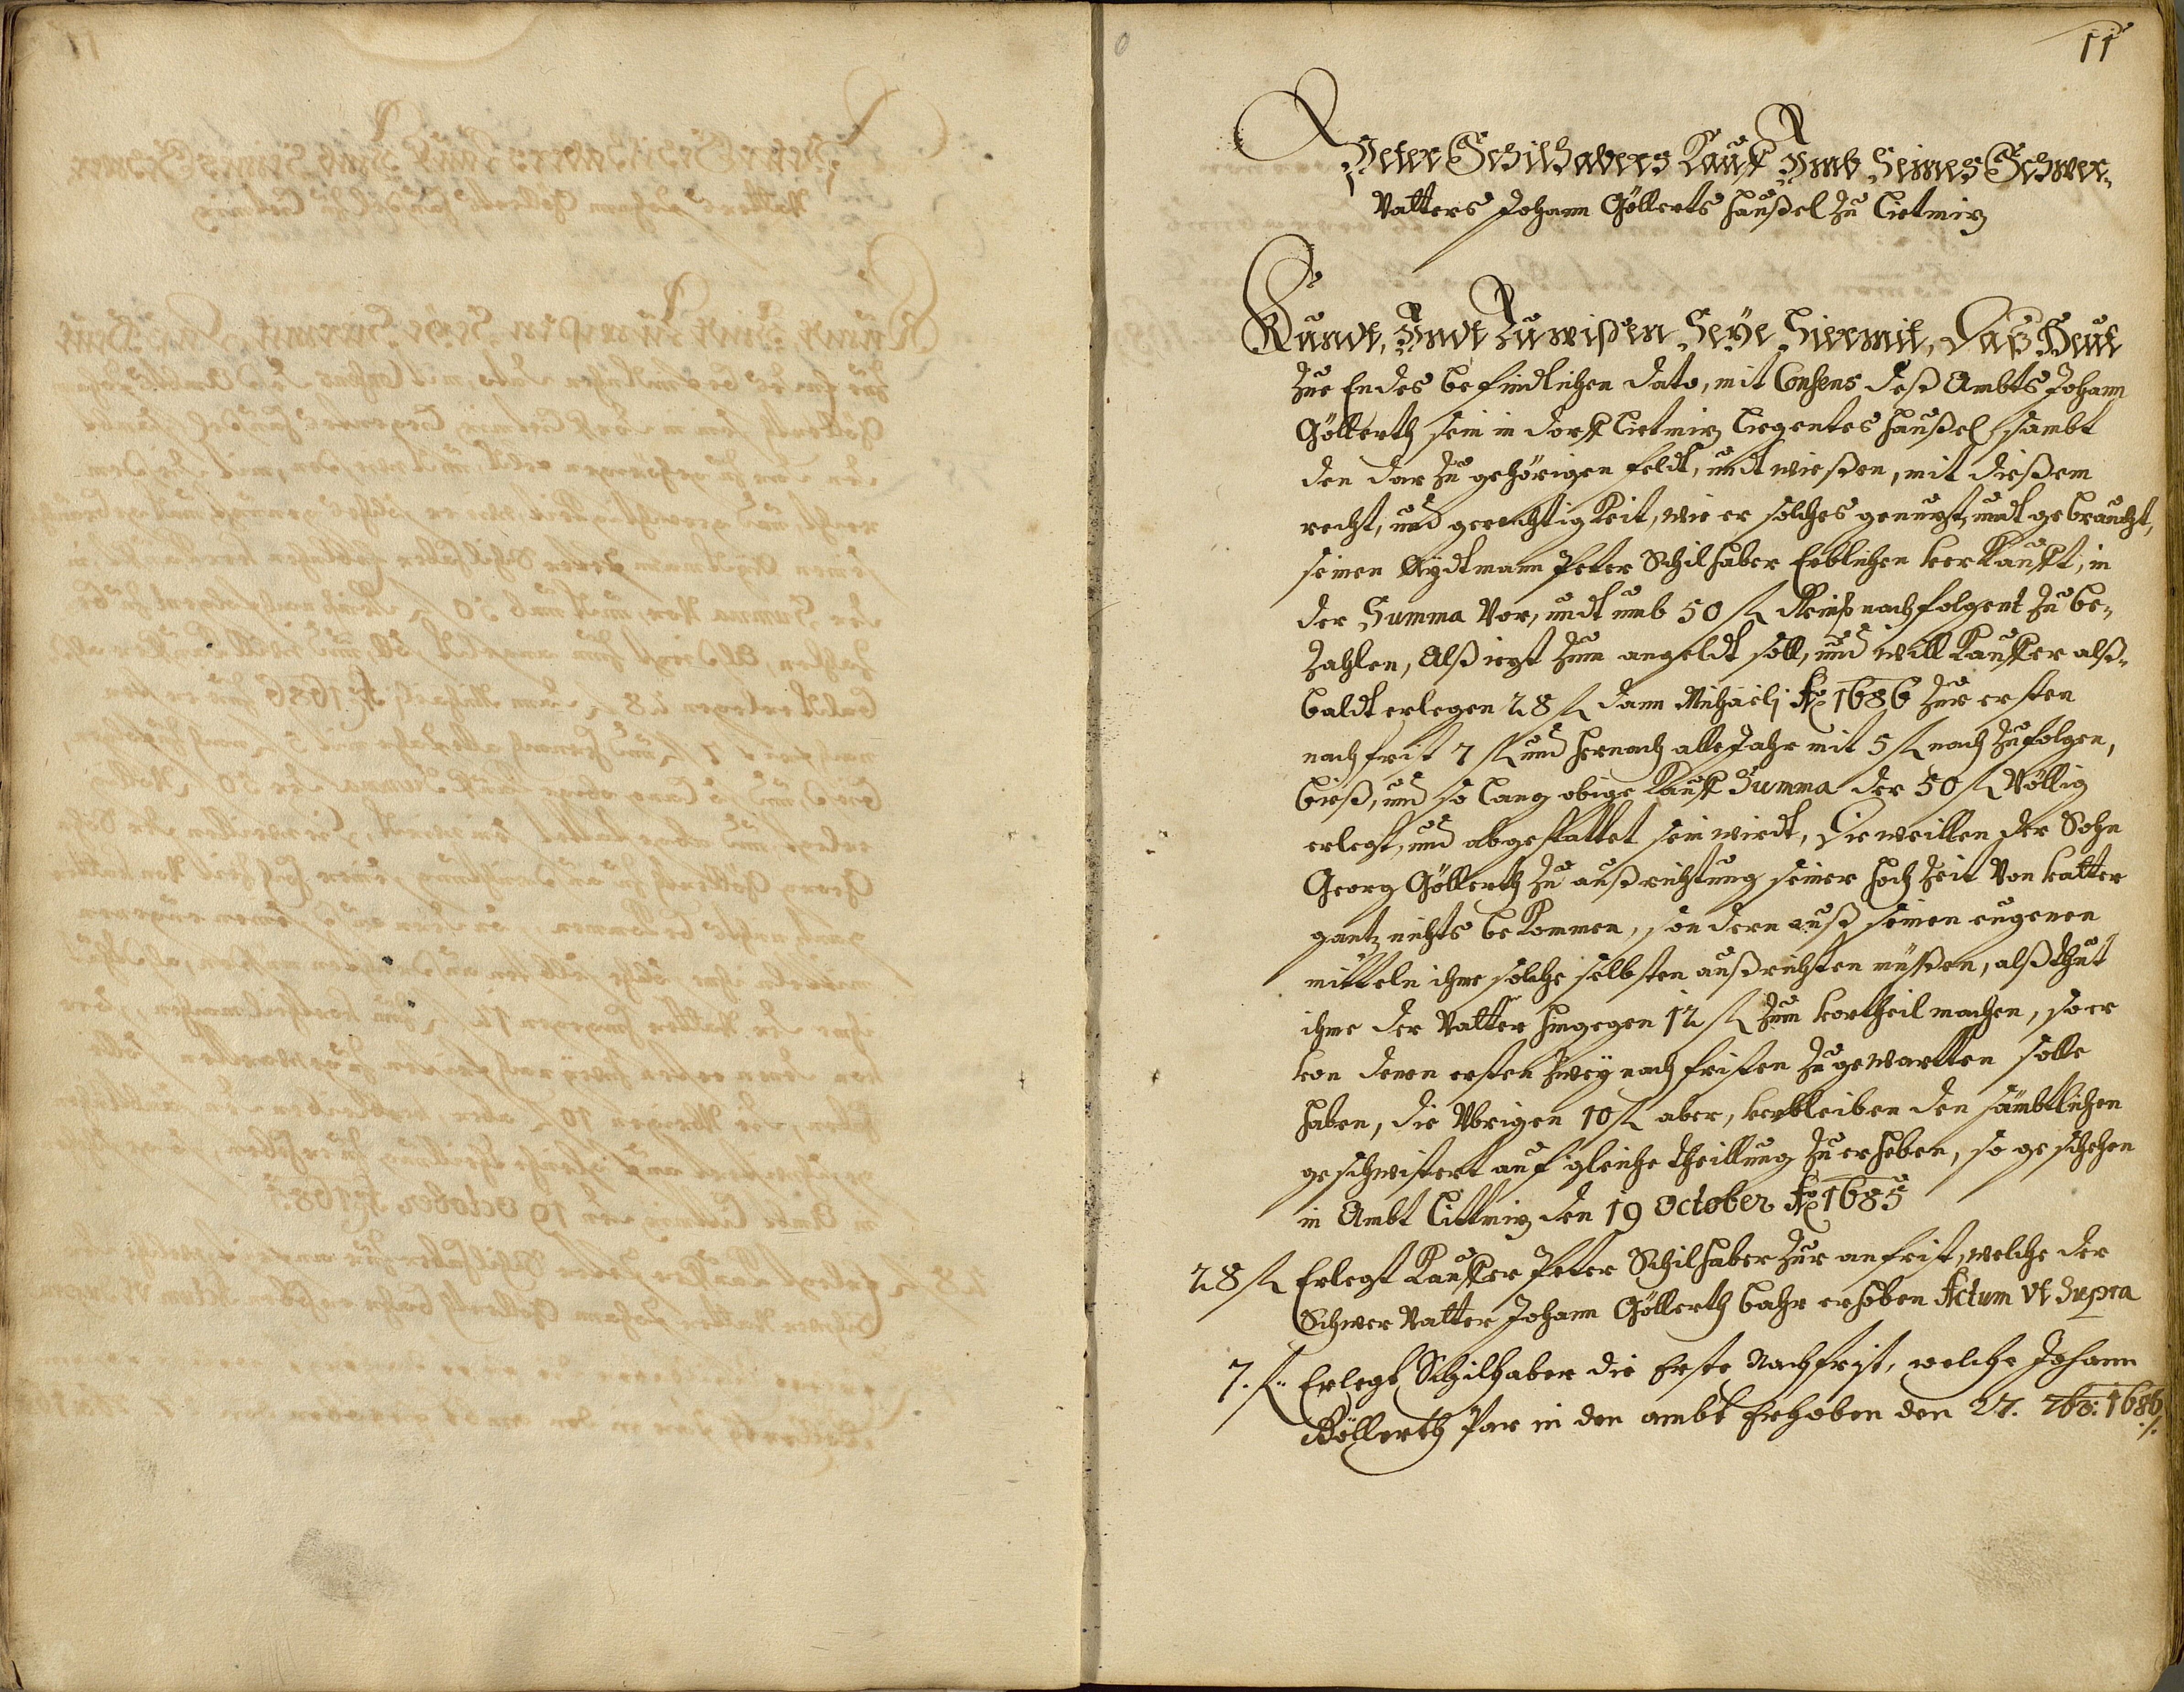 11
Peter Schilhabers Kauff Umb Seines Schwer-
Vatters Johann Göllerts Haußel zu Lietmiz
Kundt, Undt Zuwißen Seÿe Hiermit, Daß Heut
zue Endes befindlichen dato, mit Consens deß Ambts Johann
Göllerth sein in dorff Lietmiz liegentes Haußel, sambt
den dar zu gehörigen feldt, undt wießen, mit dießem
recht, und gerechtigkeit, wie er solches genutzt, undt gebraucht,
seinen Aÿdtmann Peter Schilhaber Erblichen verkaufft, in
der Summa Vor, undt umb 50 f Reinß nachfolgent zu be-
zahlen, Alß iezt zum angeldt soll, und will Kauffer alß-
baldt erlegen 28 f dann Michaeli Ao 1686 zur ersten
nachfrist 7 f und hernach alle Jahr mit 5 f nach zufolgen,
bieß, und so lang obige Kauff Summa der 50 f Völlig
erlegt, und abgestattet sein wirdt, Dieweillen der Sohn
Georg Göllerth zu außrichtung seiner Hochzeit Von vatter
gantz nichts bekommen, sondern auß seinen eugenen
mitteln ihme solche selbsten außrichten müßen, alß thut
ihme der Vatter hingegen 12 f zum vortheil machen, so er
von denen ersten zweÿ nachfristen zugewartten solle
haben, die Vbrigen 10 f aber, verbleiben den sämbtlichen
geschwistert auf gleiche theillung zu erheben, so geschehen
in Ambt Littmiz den 19 October Ao 1685
28 f Erlegt Kauffer Peter Schilhaber zur anfrist, welche der
Schwer Vatter Johann Göllerth bahr erhoben Actum Vt Supra
7. f.. Erlegt Schilhaber die Erste Nachfrist, welche Johann
Göllerth Par in den ambt Erhoben den 27. 7br: 1686